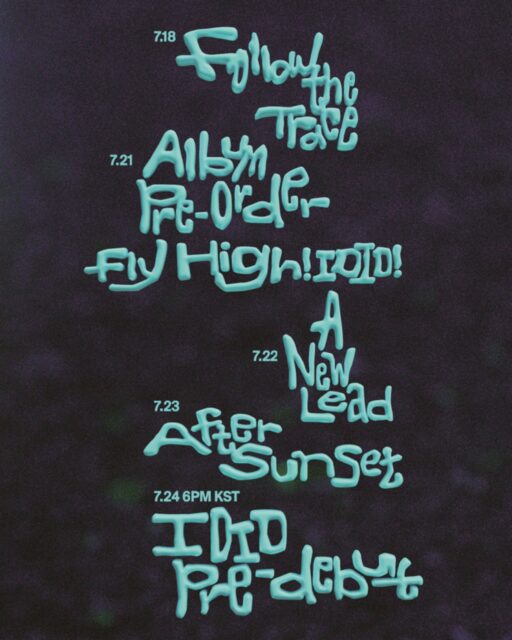 7.18 Follow
the
Trace
7.21 Album
Pre-Order
Fly High! IDID!
A
7.22 New
Lead
7.23
After
Sunset
7.24 6PM KST
IDID
Pre-debut